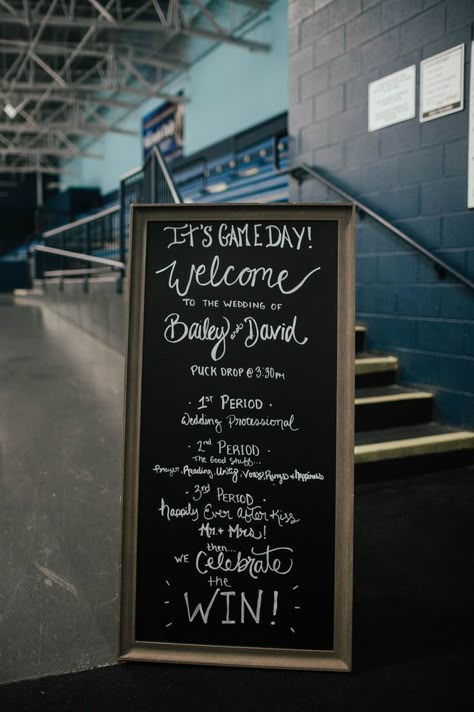 IT'S GAMEDAY!
Welcome
TO THE WEDDING OF
Bailey and David
PUCK DROP @ 3:30PM
· 1st PERIOD ·
Wedding Processional
· 2nd PERIOD ·
The Good Stuff...
Prayer, Reading, Unity, Vows, Rings + Happiness
· 3rd PERIOD ·
Happily Ever After Kiss
Mr. + Mrs!
then...
WE Celebrate
the
WIN!